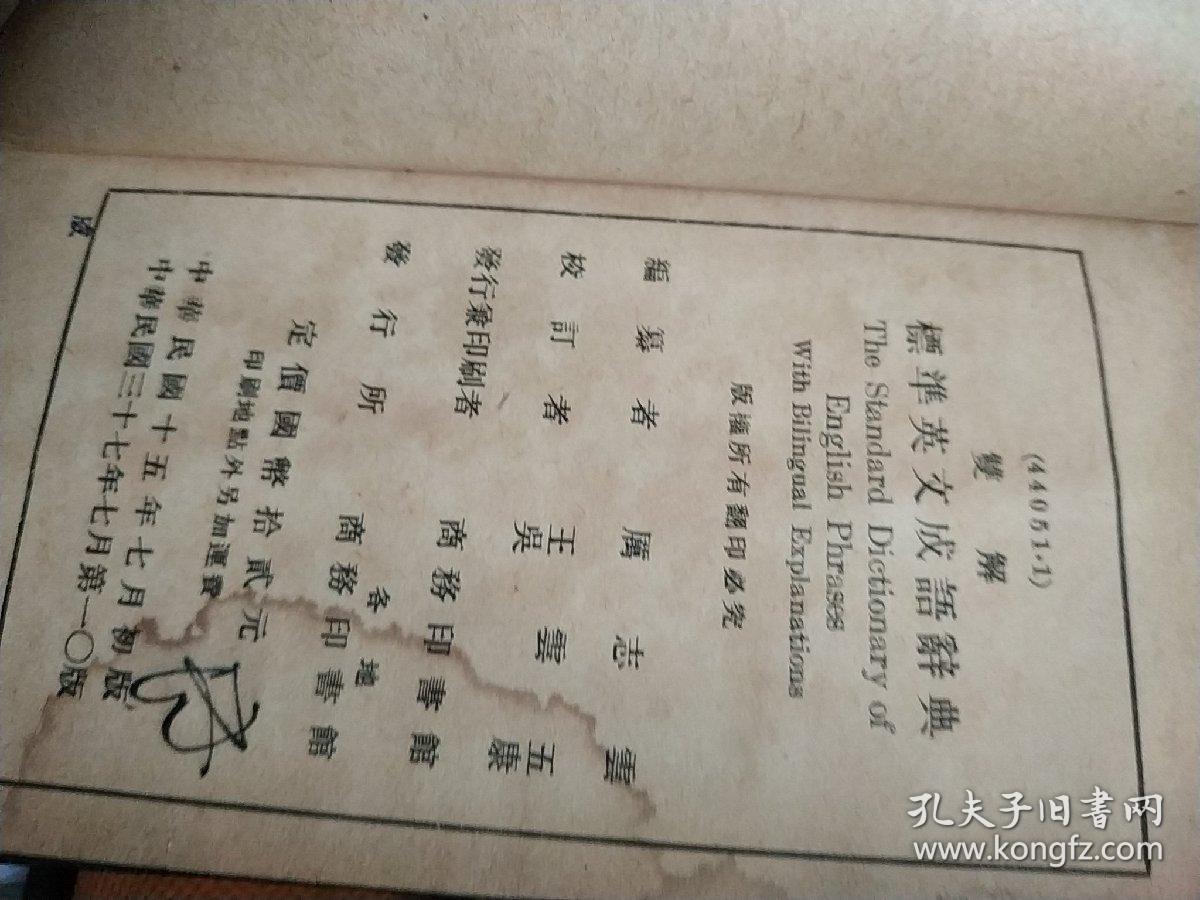 (44051·1)
雙解
標準英文成語辭典
The Standard Dictionary of
English Phrases
With Bilingual Explanations
版權所有翻印必究
編纂者 厲志雲
校訂者 王雲五
吳康
發行兼印刷者 商務印書館
發行所 各地
商務印書館
定價國幣拾貳元
印刷地點外另加運費
中華民國十五年七月初版
中華民國三十七年七月第一〇版
孔夫子旧书网
www.kongfz.com